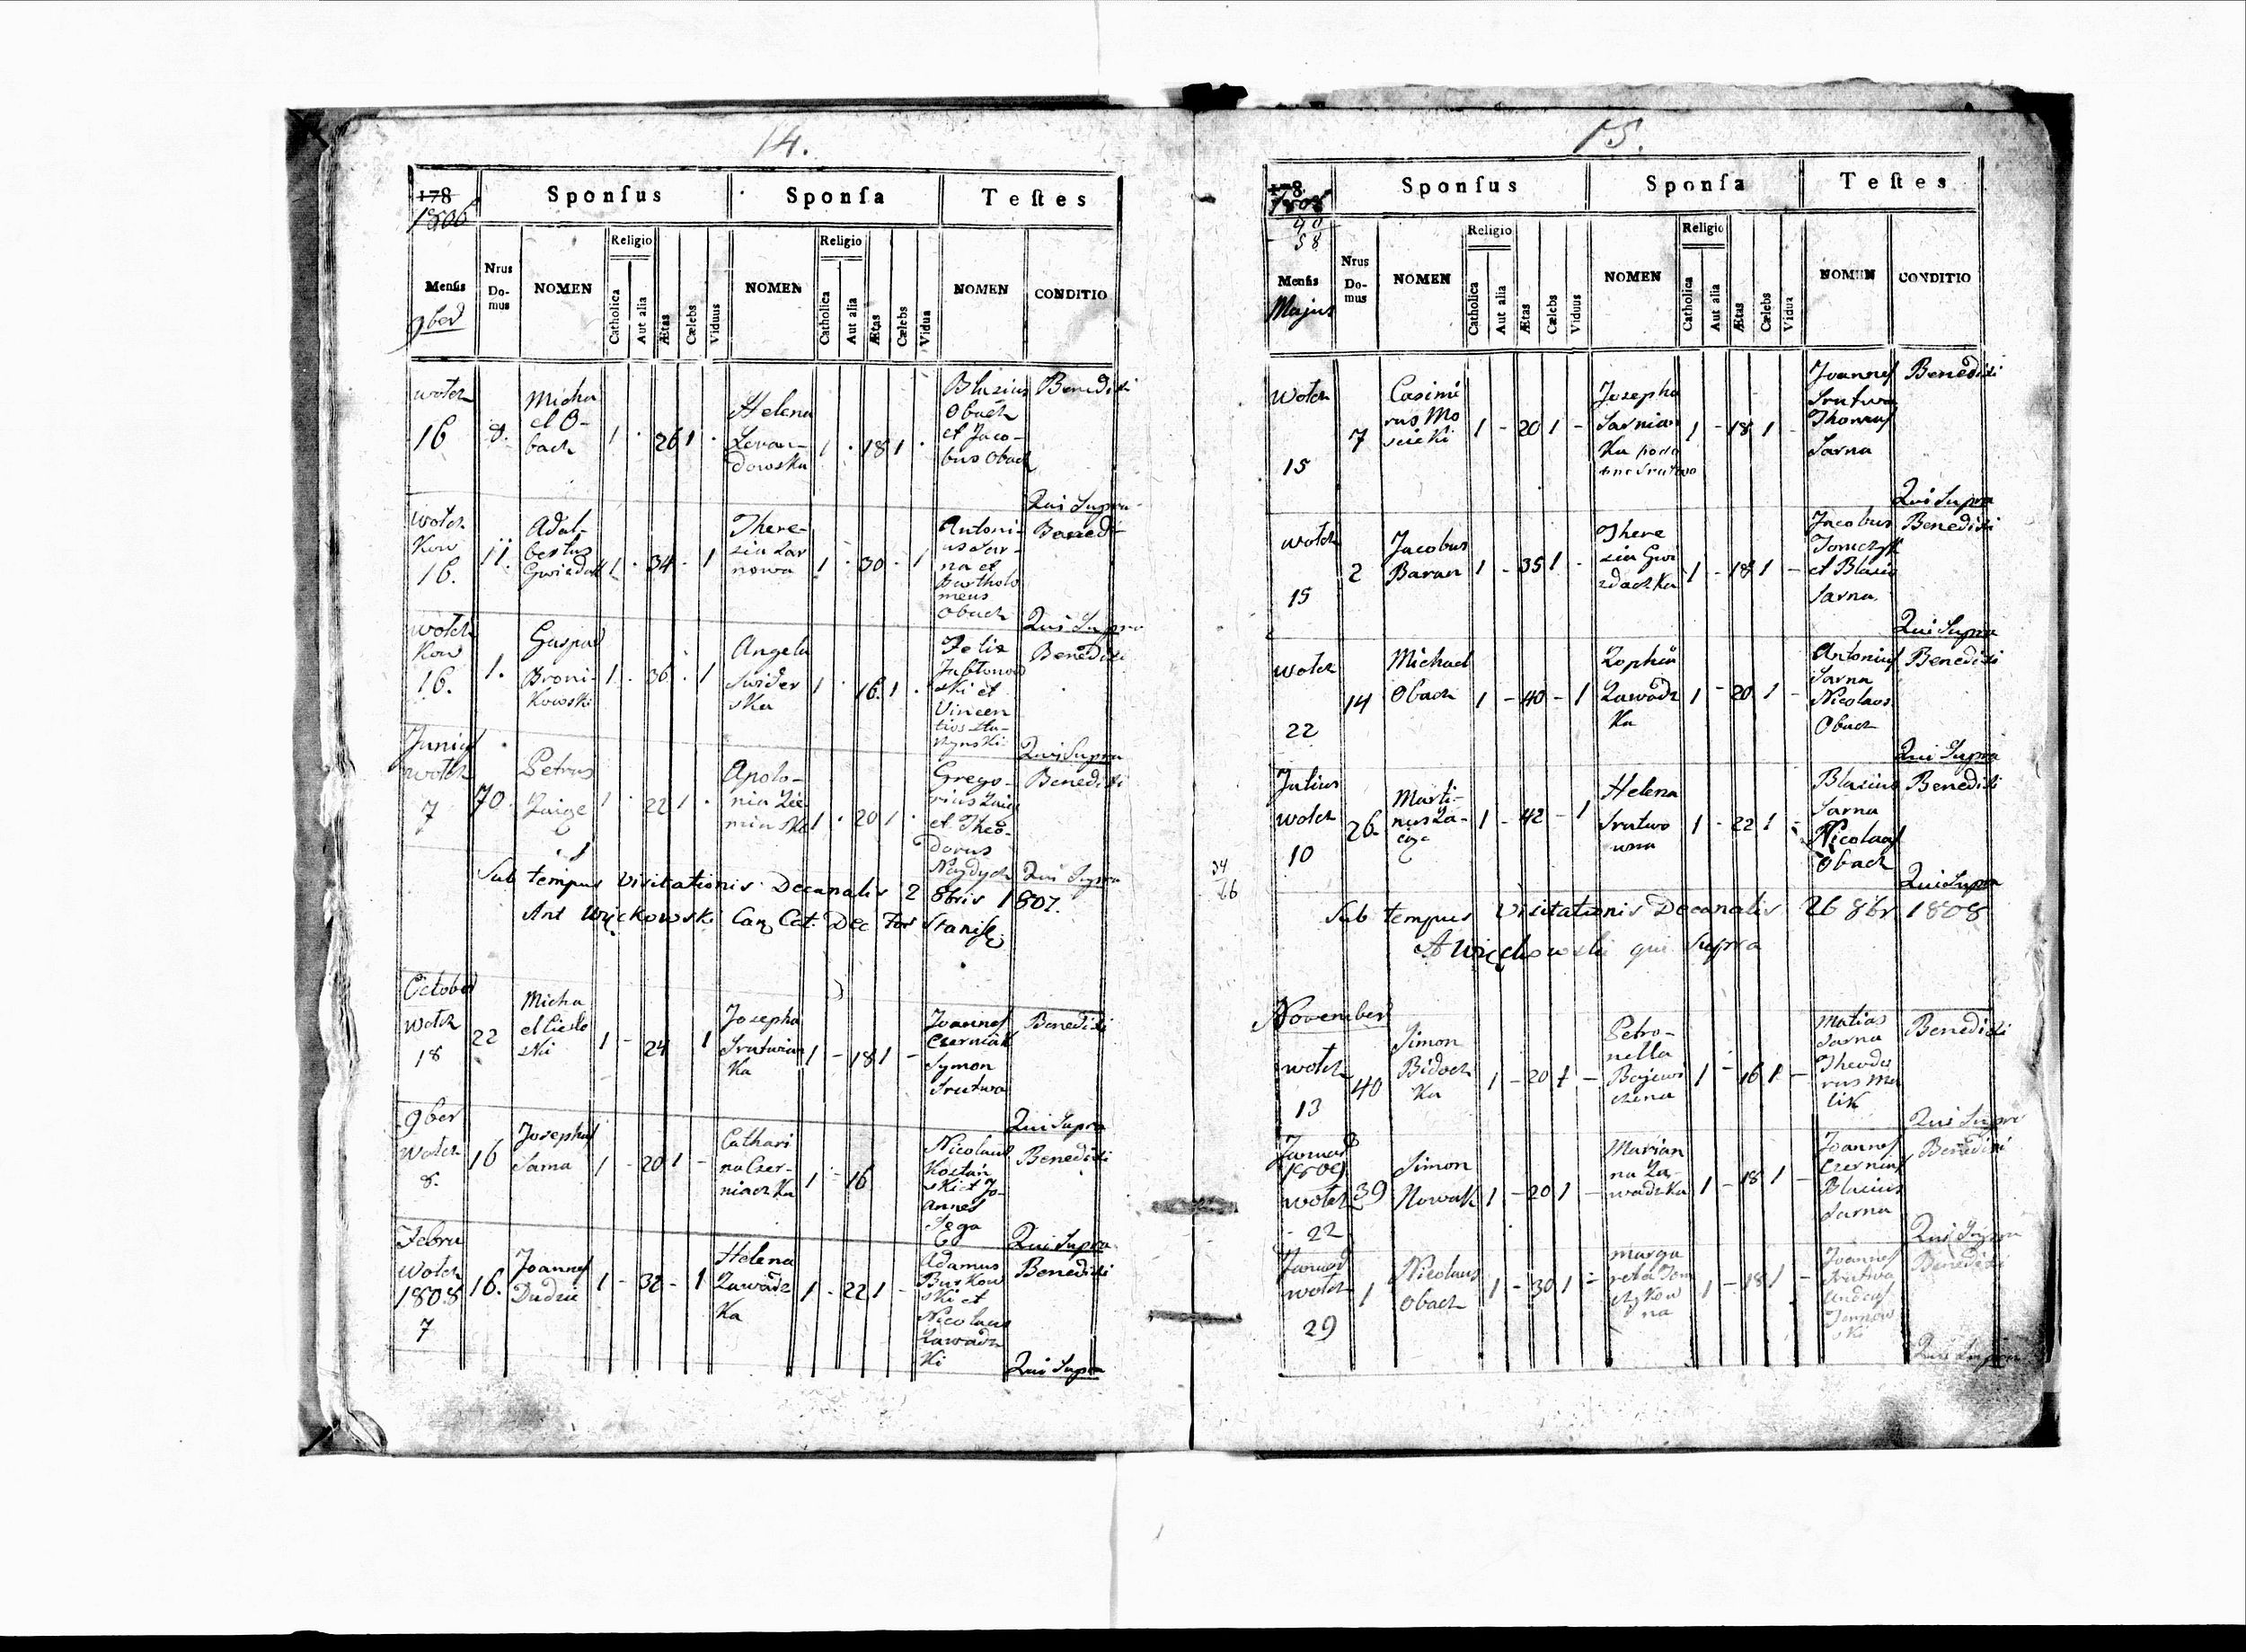 14.
178
1806
Sponſus
Sponſa
Teſtes
Menſis
9bed
Nrus Do-mus
NOMEN
Religio
Catholica
Aut alia
Ætas
Cælebs
Viduus
NOMEN
Religio
Catholica
Aut alia
Ætas
Cælebs
Vidua
NOMEN
CONDITIO
wolch
16
8.
Micha
el O-
bach
1 . 26 1 .
Helena
Levan-
dowska
1 . 18 1 .
Blasius
Obach
et Jaco-
bus Obach
Benedixi
Qui Supra
wolch
Kow
16.
11.
Adal-
bertus
1 . 34 . 1
There-
sia Sar
nowa
1 . 30 . 1
Antoni-
us Sar-
na et
Bartholo
meus
Obach
Benedi-
Qui Supra
wolch
Kow
16.
1.
Gaspad
Broni-
Kowski
1 . 36 . 1
Angela
Swider
ska
1 . 16 1 .
Felix
Jablonow
ski et
Vincen
tius
Benedixi
Qui Supra
Junius
wolch
7
70.
Petrus
Zaige
1 . 22 1 .
Apolo-
nia Zie
minska
1 . 20 1 .
Grego-
rius Zaig
et Theo-
dorus
Benedixi
Qui Supra
Sub tempus Visitationis Decanalis 2 8bris 1807.
Ant Więckowski Can Cat. Dec For Stanisł.
October
Wolch
18
22
Micha
el Ciesle
ski
1 - 24 1
Josepha
Srutwian
Ka
1 - 18 1 -
Joannes
Czerniak
Symon
Srutwa
Benedixi
Qui Supra
9ber
Wolch
8.
16
Josephus
Sarna
1 - 20 1 -
Cathari
na Czer-
niachka
1 - 16
Nicolaus
Kostań
ski et Jo-
annes
Sega
Benedixi
Qui Supra
Febru
Wolch
1808
7
16.
Joannes
Dudzic
1 - 32 - 1
Helena
Zawadz
Ka
1 - 22 1 -
Adamus
Burkow
ski et
Nicolaus
Zawadz
Ki
Benedixi
Qui Supra
15.
178
1808
Sponſus
Sponſa
Teſtes
Menſis
Majus
Nrus Do-mus
NOMEN
Religio
Catholica
Aut alia
Ætas
Cælebs
Viduus
NOMEN
Religio
Catholica
Aut alia
Ætas
Cælebs
Vidua
NOMEN
CONDITIO
Wolch
15
7
Casimi
rus Mo
scicki
1 - 20 1 -
Josepha
Sarnian
Ka
1 - 18 1 -
Joannes
Srutwa
Thomas
Sarna
Benedixi
Qui Supra
wolch
15
2
Jacobus
Baran
1 - 35 1 -
There
sia Gwi
zdachka
1 - 18 1 -
Jacobus
Tomczyk
et Blasiu
Sarna
Benedixi
Qui Supra
wolch
22
14
Michael
Obach
1 - 40 - 1
Zophia
Zawadz
Ka
1 - 20 1 -
Antonius
Sarna
Nicolaus
Obach
Benedixi
Qui Supra
Julius
wolch
10
26
Marti-
nus Za-
1 - 42 - 1
Helena
Srutwo
wna
1 - 22 1 -
Blasius
Sarna
Nicolaus
Obach
Benedixi
Qui Supra
34
26
Sub tempus Visitationis Decanalis 26 8br 1808
A Więckowski qui Supra
November
wolch
13
40
Simon
Bidoch
Ka
1 - 20 1 -
Petro-
nella
1 - 16 1 -
Matias
Sarna
Theodo
rus Ma
lik
Benedixi
Qui Supra
Januar
1809
wolch
22
39
Simon
Nowak
1 - 20 1 -
Marian
na Za-
wadzka
1 - 18 1 -
Joannes
Blasius
Sarna
Benedixi
Qui Supra
Januar
wolch
29
1
Nicolaus
Obach
1 - 30 1 -
Marga
reta Tom
czykow
na
1 - 18 1 -
Joannes
Srutwa
Benedixi
Qui Supra